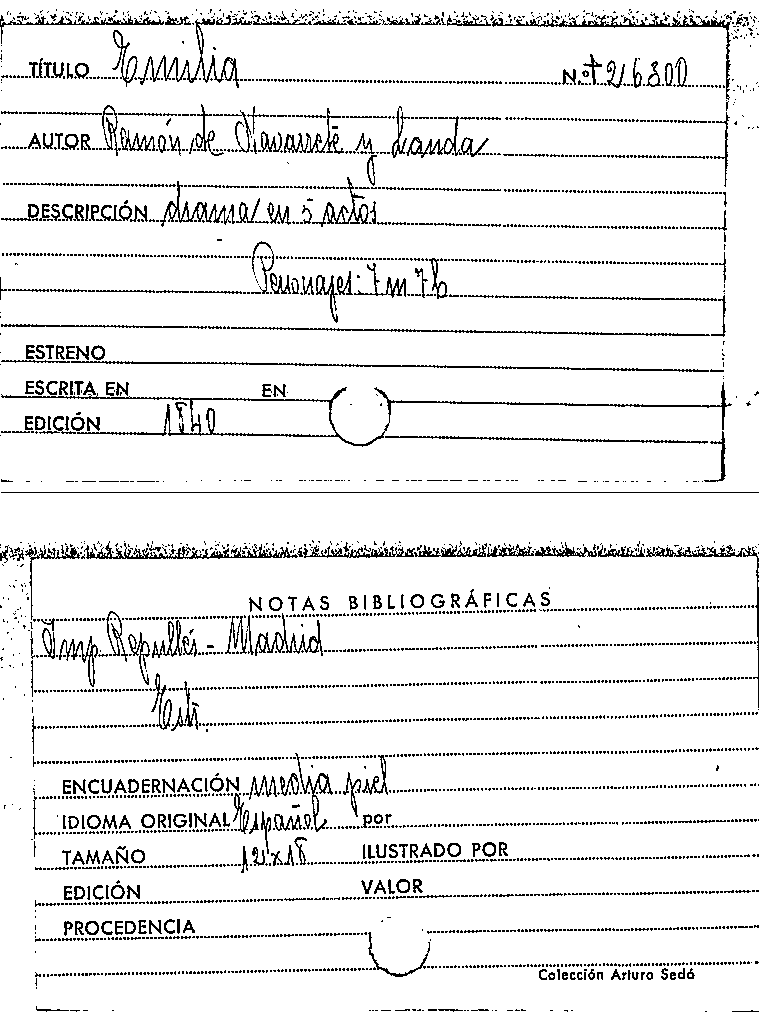 TÍTULO Emilia N.º + 216800
AUTOR Ramón de Navarrete y Landa
DESCRIPCIÓN drama en 5 actos
Personajes: 7 m 7 h
ESTRENO
ESCRITA EN EN
EDICIÓN 1840
NOTAS BIBLIOGRÁFICAS
Imp Repullés - Madrid
Estr.
ENCUADERNACIÓN media piel
IDIOMA ORIGINAL Español por
TAMAÑO 12x18 ILUSTRADO POR
EDICIÓN VALOR
PROCEDENCIA
Colección Arturo Sedó